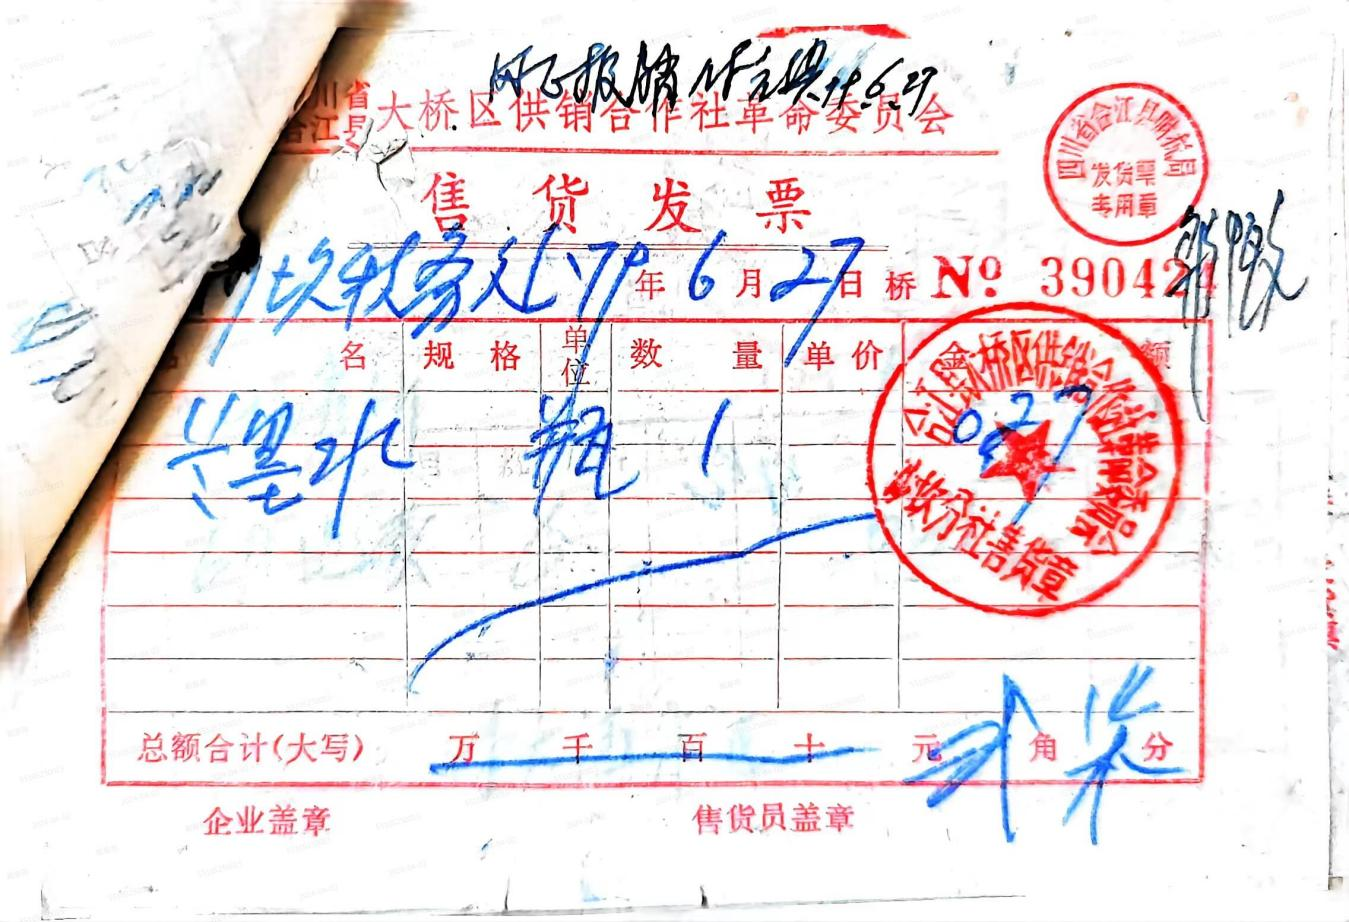 同意报销 79.6.27
川省
合江县 大桥区供销合作社革命委员会
四川省合江县财税局
发货票
专用章
售货发票
税务处 79年6月27日 桥 № 390424
名 规格 单位 数量 单价 金额
兰墨水 瓶 1 0.27
合江县大桥区供销合作社革命委员会
坎分社售货章
总额合计(大写) 万 千 百 十 元 贰角 柒分
企业盖章 售货员盖章